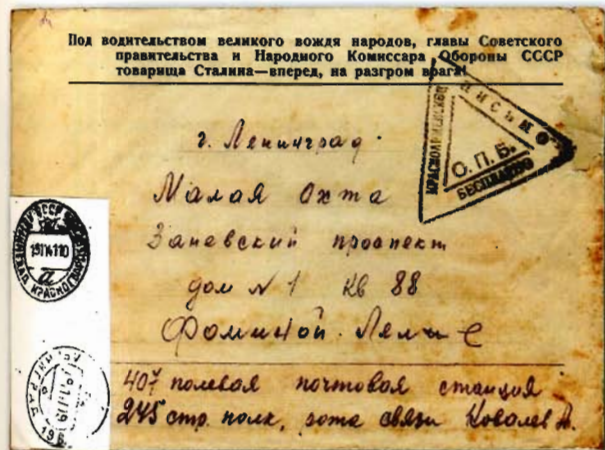 Под водительством великого вождя народов, главы Советского
правительства и Народного Комиссара Обороны СССР
товарища Сталина—вперед, на разгром врага!
КРАСНОАРМЕЙСКОЕ
ПИСЬМО
О.П.Б.
БЕСПЛАТНО
г. Ленинград.
Малая Охта
Заневский проспект
дом № 1 кв 88
Фоминой Леле
407 полевая почтовая станция
245 стр. полк, рота связи Ковалев А.